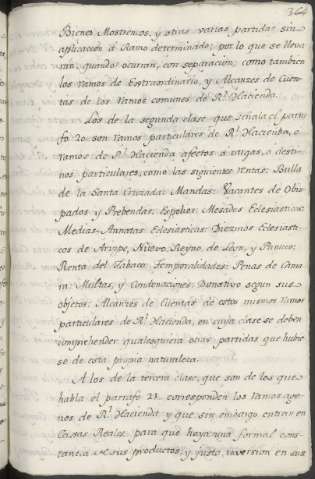 364
Bienes Mostrencos, y otras varias partidas sin
aplicacion á Ramo determinado; por lo que se lleva
rán, quando ocurran, con separacion; como tambien
los ramos de Extraordinario, y Alcanzes de Cuen
tas de los Ramos comunes de Rl. Hacienda.
Los de la segunda clase que señala el parra
fo 20 son ramos particulares de Rl. Hacienda, o
ramos de Rl. Hacienda afectos á cargas, o desti
nos particulares, como las siguientes rentas: Bulla
de la Santa Cruzada: Mandas: Vacantes de Obis
pados, y Prebendas: Espolios: Mesadas Eclesiasticas:
Medias Annatas Eclesiasticas: Diezmos Eclesiasti
cos de
Nuevo Reyno, de Leon, y
Renta del Tabaco: Temporalidades: Penas de Cama
ra: Multas, y Condenaciones: Donativo segun sus
objetos: Alcances de Cuentas de estos mismos ramos
particulares de Rl. Hacienda, en cuya clase se deben
comprehender qualesquiera otras partidas que hubie
se de esta propia naturaleza.
A los de la tercera clase, que son de los que
habla el parrafo 21. corresponden los ramos age
nos de Rl. Hacienda y que sin embargo entran en
Caxas Reales para que haya una formal cons
tancia de sus productos, y justa inversion en sus